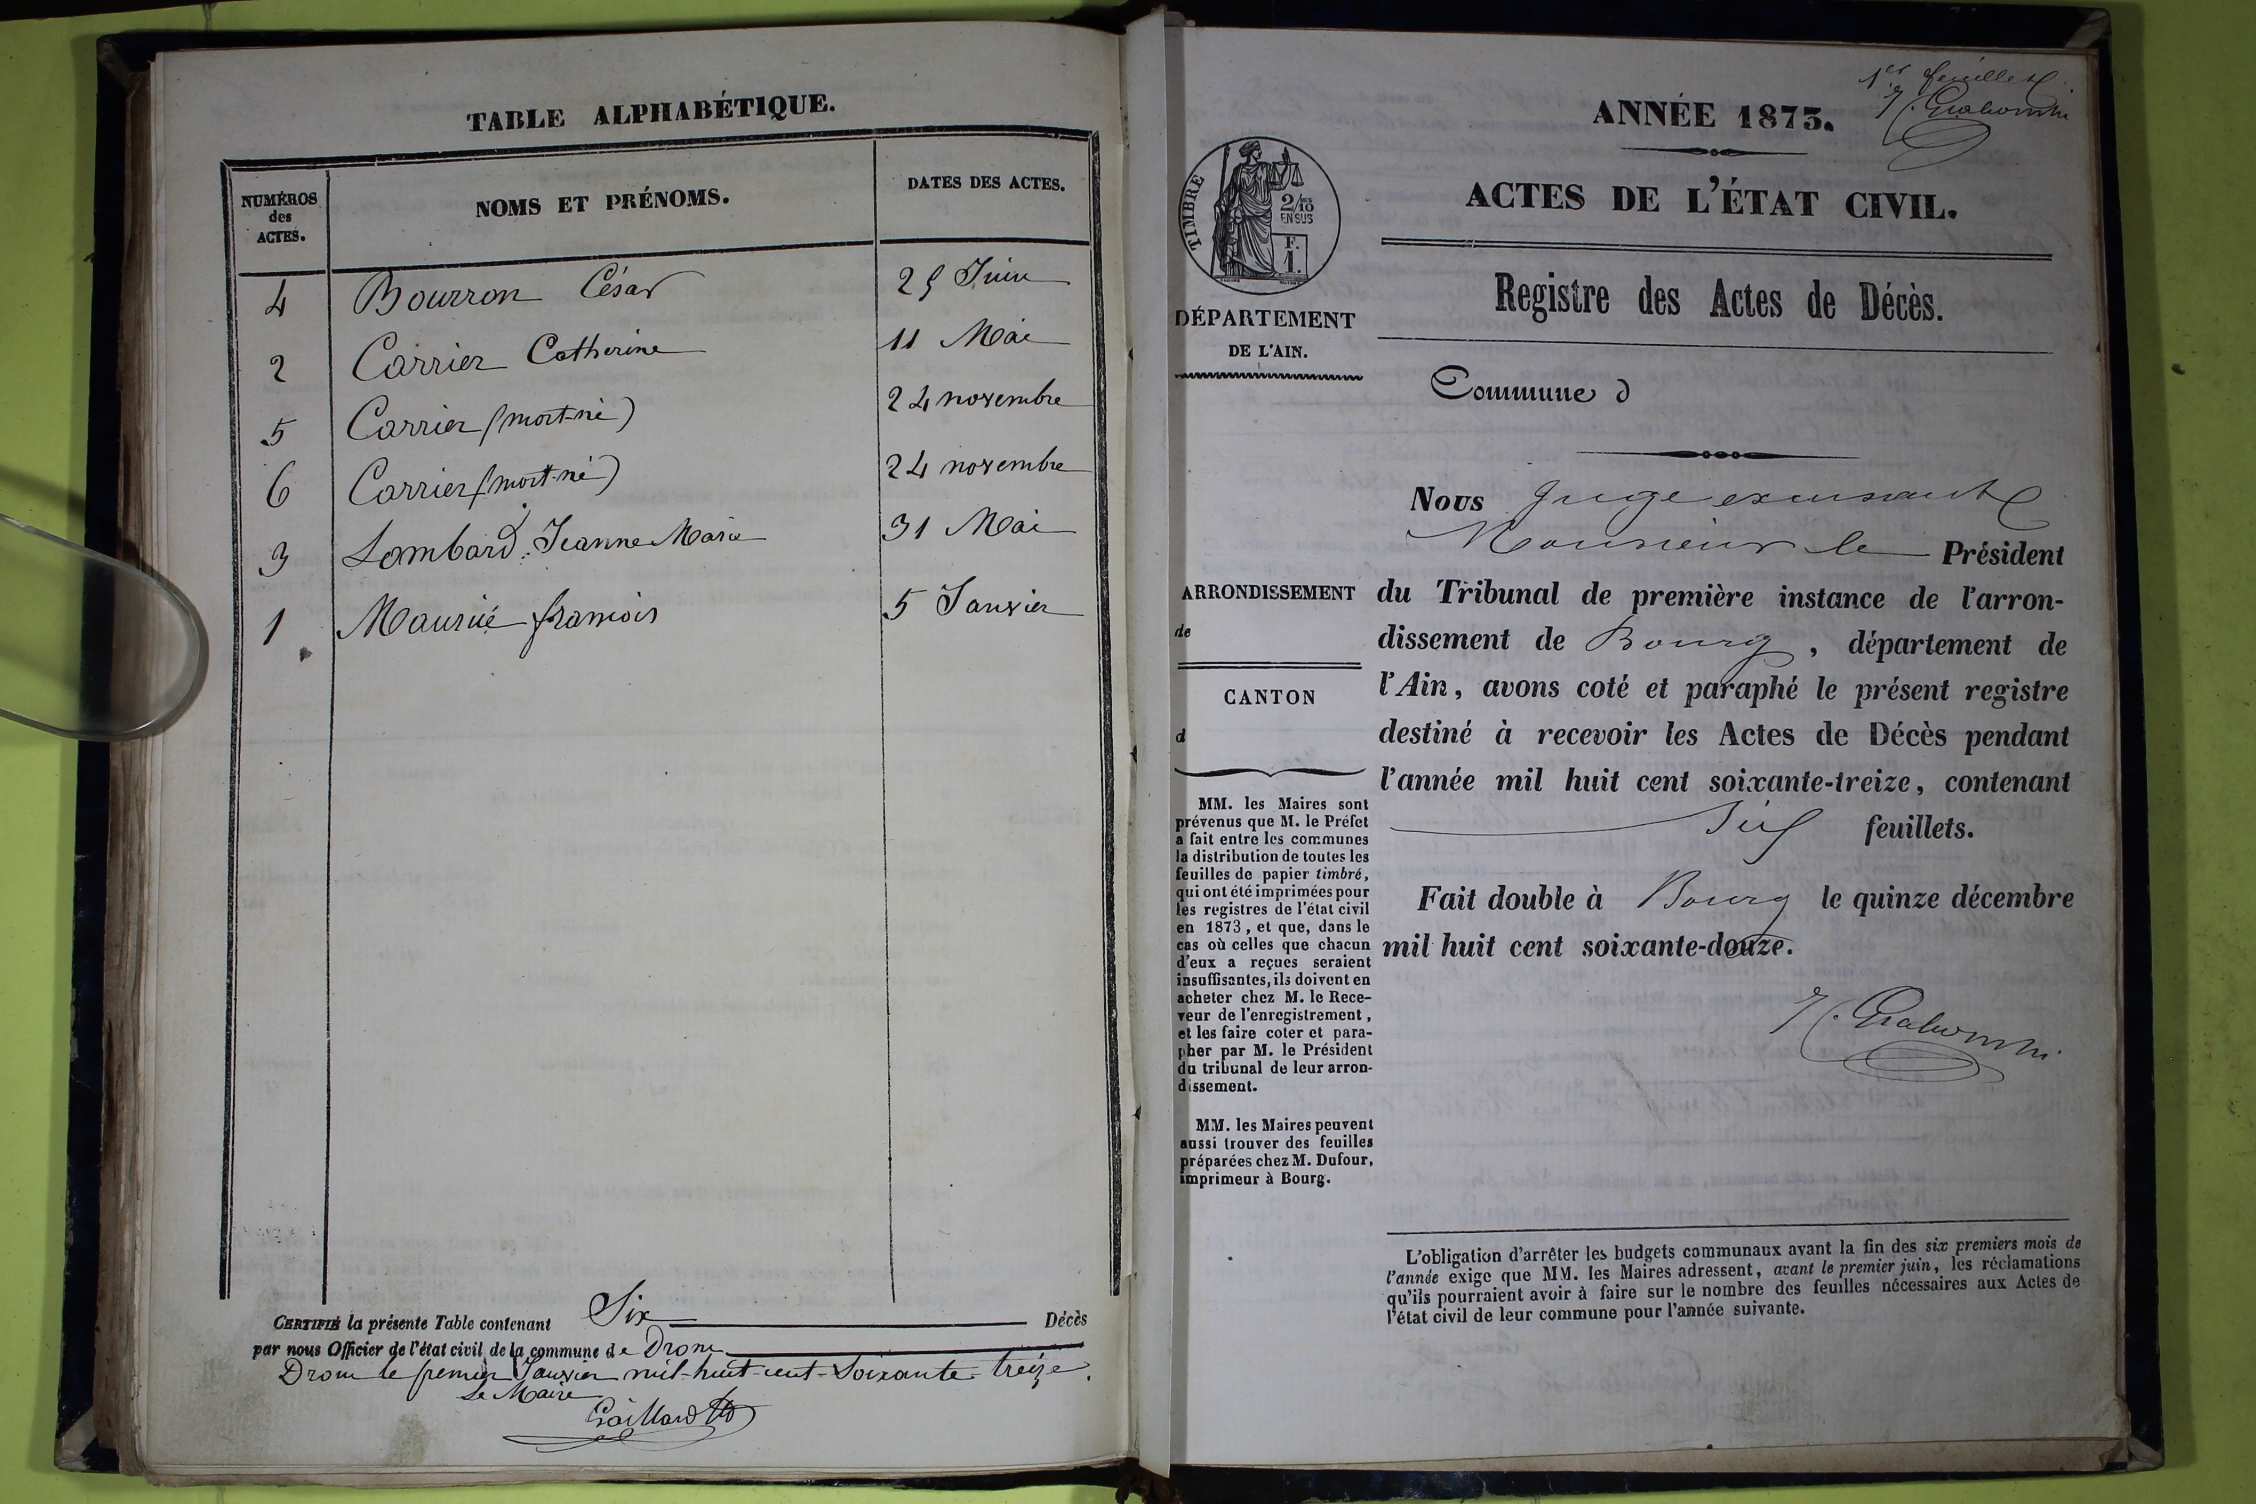 TABLE ALPHABÉTIQUE.
NUMÉROS
des
ACTES.
NOMS ET PRÉNOMS.
DATES DES ACTES.
4 Bourron César 25 Juin
2 Carrier Catherine 11 Mai
5 Carrier (mort-né) 24 novembre
6 Carrier (mort-né) 24 novembre
3 Lombard Jeanne Marie 31 Mai
1 françois 5 Janvier
CERTIFIÉ la présente Table contenant Six Décès
par nous Officier de l'état civil de la commune de Drom
Drom le premier Janvier mil-huit-cent-Soixante-treize.
Le Maire
Gaillard
1er feuillet
ANNÉE 1873.
ACTES DE L'ÉTAT CIVIL.
Registre des Actes de Décès.
TIMBRE
2/10
EN SUS
F.
1.
DÉPARTEMENT
DE L'AIN.
Commune d
Nous Juge
Monsieur le Président
ARRONDISSEMENT
de
CANTON
d
du Tribunal de première instance de l'arron-
dissement de Bourg, département de
l'Ain, avons coté et paraphé le présent registre
destiné à recevoir les Actes de Décès pendant
l'année mil huit cent soixante-treize, contenant
Six feuillets.
Fait double à Bourg le quinze décembre
mil huit cent soixante-douze.
MM. les Maires sont
prévenus que M. le Préfet
a fait entre les communes
la distribution de toutes les
feuilles de papier timbré,
qui ont été imprimées pour
les registres de l'état civil
en 1873, et que, dans le
cas où celles que chacun
d'eux a reçues seraient
insuffisantes, ils doivent en
acheter chez M. le Rece-
veur de l'enregistrement,
et les faire coter et para-
pher par M. le Président
du tribunal de leur arron-
dissement.
MM. les Maires peuvent
aussi trouver des feuilles
préparées chez M. Dufour,
imprimeur à Bourg.
L'obligation d'arrêter les budgets communaux avant la fin des six premiers mois de
l'année exige que MM. les Maires adressent, avant le premier juin, les réclamations
qu'ils pourraient avoir à faire sur le nombre des feuilles nécessaires aux Actes de
l'état civil de leur commune pour l'année suivante.